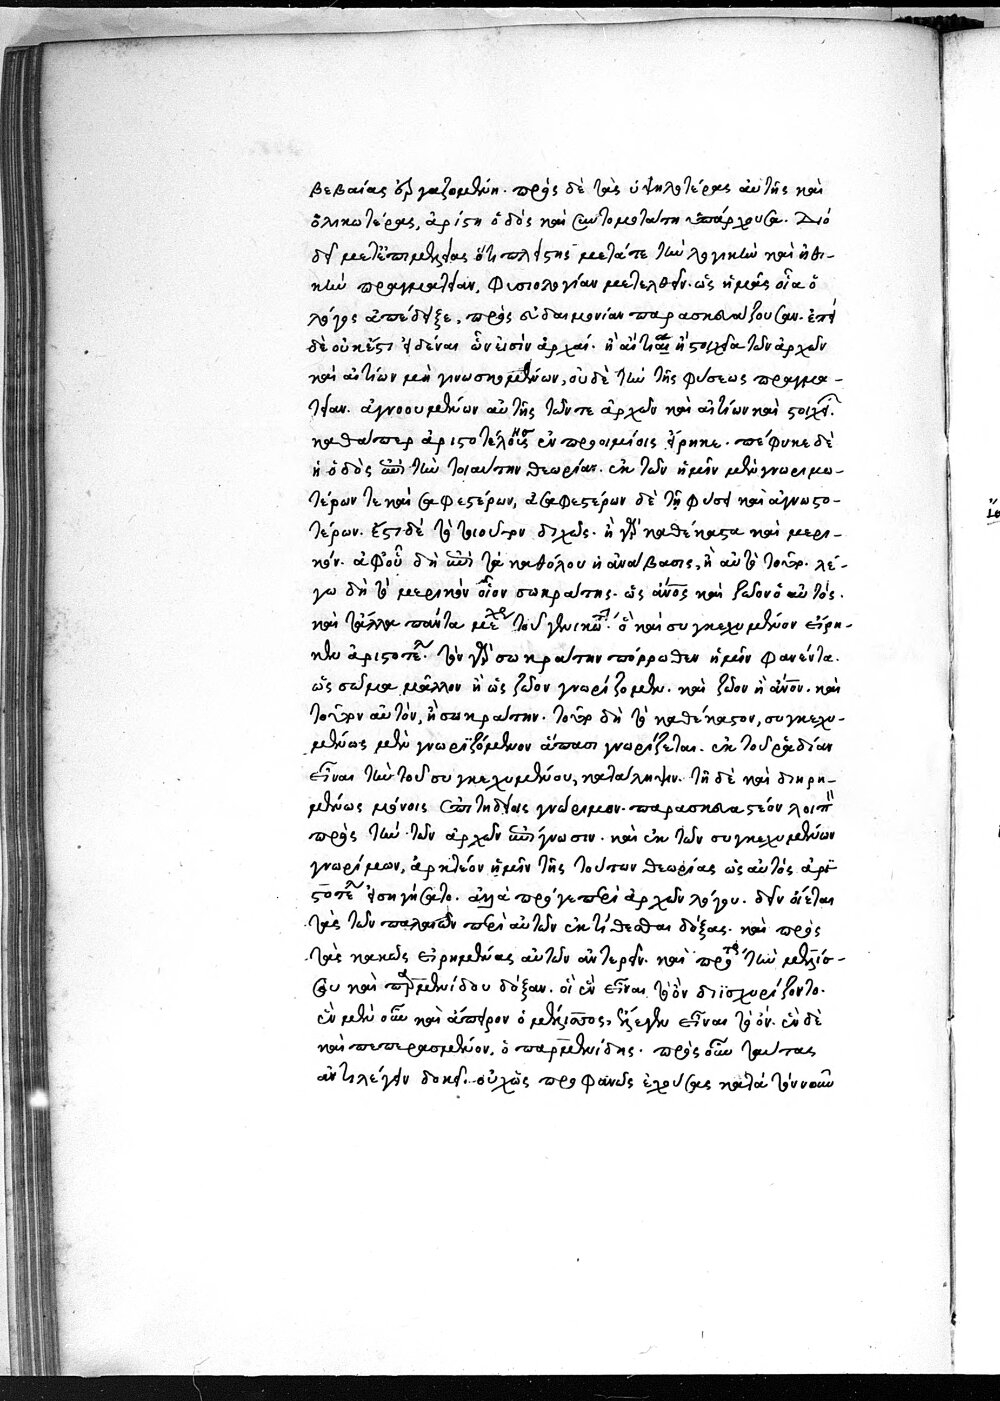 βεβαίας ἐργαζομένη. πρὸς δὲ τὰς ὑψηλοτέρας αὐτῆς καὶ
ὁλικωτέρας, ἀρίστη ὁδὸς καὶ συντομοτάτη ὑπάρχουσα. Διὸ
δεῖ μετ' ἐπιμελείας ὅτι πλείστης μετά τε τὴν λογικὴν καὶ ἠθι-
κὴν πραγματείαν, φυσιολογίαν μετελθεῖν. ὡς ἡμᾶς οἷα ὁ
λόγος ἀπέδειξε, πρὸς εὐδαιμονίαν παρασκευάζουσαν. ἐπεὶ
δὲ οὐκ ἔστι εἰδέναι ὧν εἰσὶν ἀρχαί. ἢ αἰτίαι ἢ στοιχεῖα τῶν ἀρχῶν
καὶ αἰτίων μὴ γινωσκομένων, οὐδὲ τὴν τῆς φύσεως πραγμα-
τείαν. ἀγνοουμένων αὐτῆς τῶν τε ἀρχῶν καὶ αἰτίων καὶ στοιχεί.
καθάπερ ἀριστοτέλης ἐν προοιμίοις εἴρηκε. πέφυκε δὲ
ἡ ὁδὸς ἐπὶ τὴν τοιαύτην θεωρίαν. ἐκ τῶν ἡμῖν μὲν γνωριμω-
τέρων τε καὶ σαφεστέρων, ἀσαφεστέρων δὲ τῇ φύσει καὶ ἀγνωστο-
τέρων. ἔστι δὲ τὸ τοιοῦτον διχῶς. ἢ γὰρ καθέκαστα καὶ μερι-
κόν. ἀφ' οὗ δὴ ἐπὶ τὰ καθόλου ἡ ἀνάβασις, ἢ αὐτὸ τοῦτο. λέ-
γω δὴ τὸ μερικὸν οἷον σωκράτης. ὡς ἄνος καὶ ζῶον ὁ αὐτός.
καὶ τἆλλα πάντα μέχρι τοῦ γενικωτ. ὃ καὶ συγκεχυμένον εἴρη-
κεν ἀριστοτέλ. τὸν γὰρ σωκράτην πόρρωθεν ἡμῖν φανέντα.
ὡς σῶμα μᾶλλον ἢ ὡς ζῶον γνωρίζομεν. καὶ ζῶον ἢ ἄνον. καὶ
τοῦτον αὐτὸν, ἢ σωκράτην. τοῦτο δὴ τὸ καθέκαστον, συγκεχυ-
μένως μὲν γνωριζόμενον ἅπασι γνωρίζεται. ἐκ τοῦ ῥαδίαν
εἶναι τὴν τοῦ συγκεχυμένου, κατάληψιν. τῇ δὲ καὶ διῃρη-
μένως μόνοις ἐπιτηδείοις γνώριμον. παρασκευαστέον λοιπὸν
πρὸς τὴν τῶν ἀρχῶν ἐπίγνωσιν. καὶ ἐκ τῶν συγκεχυμένων
γνωρίμων, ἀρκτέον ἡμῖν τῆς τούτων θεωρίας ὡς αὐτὸς ἀρι
στοτέλ εἰσηγήσατο. ἀλλὰ πρό γε περὶ ἀρχῶν λόγου. δεῖν οἴεται
τὰς τῶν παλαιῶν περὶ αὐτῶν ἐκτίθεσθαι δόξας. καὶ πρὸς
τὰς κακῶς εἰρημένας αὐτῶν ἀντερεῖν. καὶ πρό τε τὴν μελίσ-
σου καὶ παρμενίδου δόξαν. οἳ ἓν εἶναι τὸ ὂν διϊσχυρίζοντο.
ἓν μὲν οὖν καὶ ἄπειρον ὁ μέλισσος, ἔλεγεν εἶναι τὸ ὄν. ἓν δὲ
καὶ πεπερασμένον, ὁ παρμενίδης. πρὸς οὖν ταύτας
ἀντιλέγειν δοκεῖ. οὐχ ὡς προφανῶς ἐχούσας κατὰ τὸν νοῦν